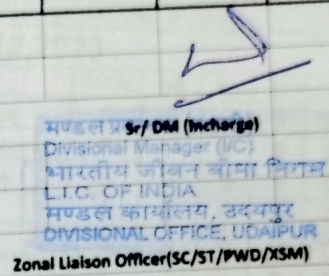 मण्डल Sr/ DM (Incharge)
Divisional Manager (I/C)
भारतीय जीवन बीमा निगम
L.I.C. OF INDIA
मण्डल कार्यालय, उदयपुर
DIVISIONAL OFFICE, UDAIPUR
Zonal Liaison Officer(SC/ST/PWD/XSM)